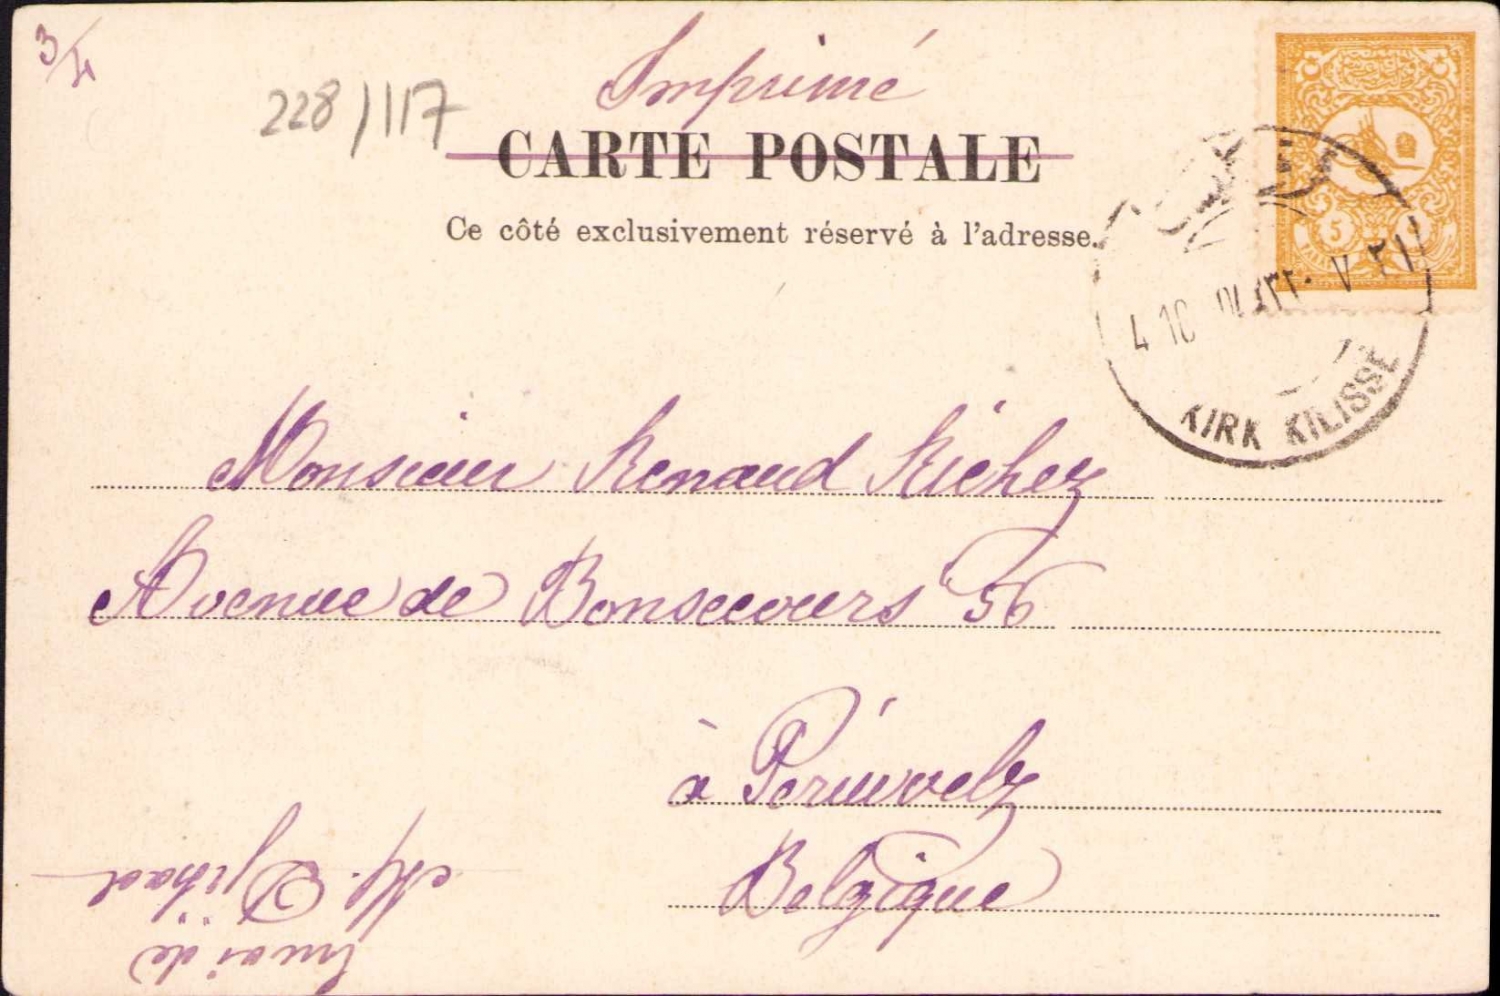 3/4
228/117
Imprimé
CARTE POSTALE
Ce côté exclusivement réservé à l'adresse.
5
4 10
KIRK KILISSE
Monsieur Renaud Richez
Avenue de Bonsecours 56
à Péruwelz
Belgique
Envoi de
M. Djihad